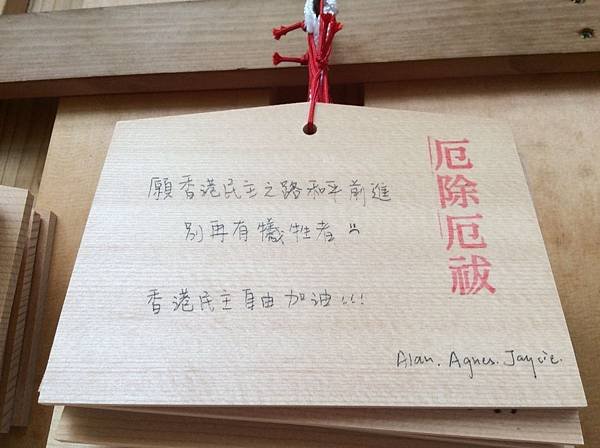 願香港民主之路和平前進
別再有犧牲者
香港民主自由加油!!!
厄除厄祓
Alan. Agnes. Jaycie.